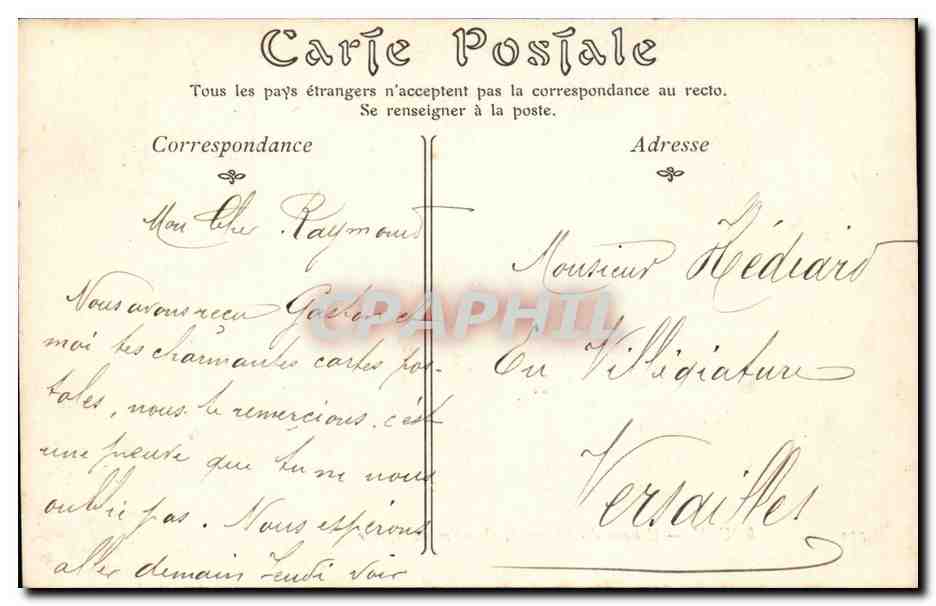 Carte Postale
Tous les pays étrangers n'acceptent pas la correspondance au recto.
Se renseigner à la poste.
Correspondance
Mon Cher Raymond
Nous avons reçu Gaston et
moi tes charmantes cartes pos-
tales, nous te remercions. c'est
une preuve que tu ne nous
oublie pas. Nous espérons
aller demain Jeudi voir
Adresse
Monsieur Hédiard
En Villégiature
Versailles
CPAPHIL